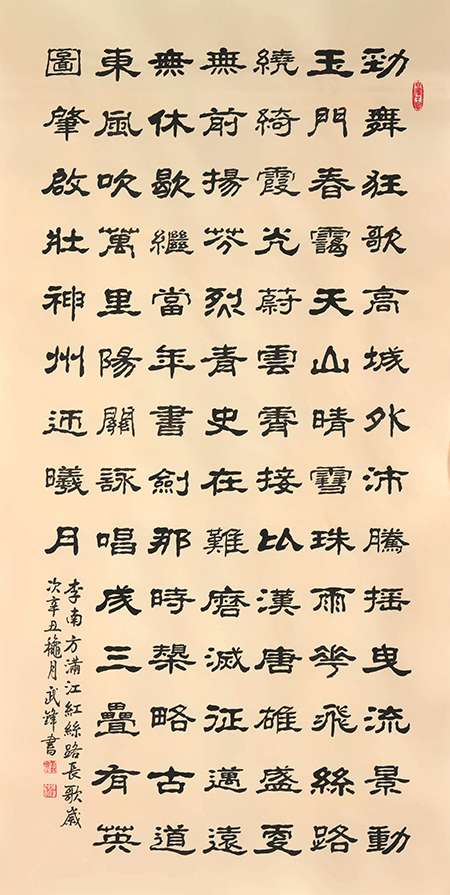 勁舞狂歌高城外沛騰搖曳流景動
玉門春靄天山晴雪珠雨花飛絲路
繞綺霞光蔚雲霽接以漢唐雄盛夏
無前揚芬烈青史在難磨滅征邁遠
無休歇繼當年書劍那時槊略古道
東風吹萬里陽關詠唱成三疊有英
圖肇啟壯神州迎曦月
李南方滿江紅絲路長歌歲
次辛丑龝月武鋒書